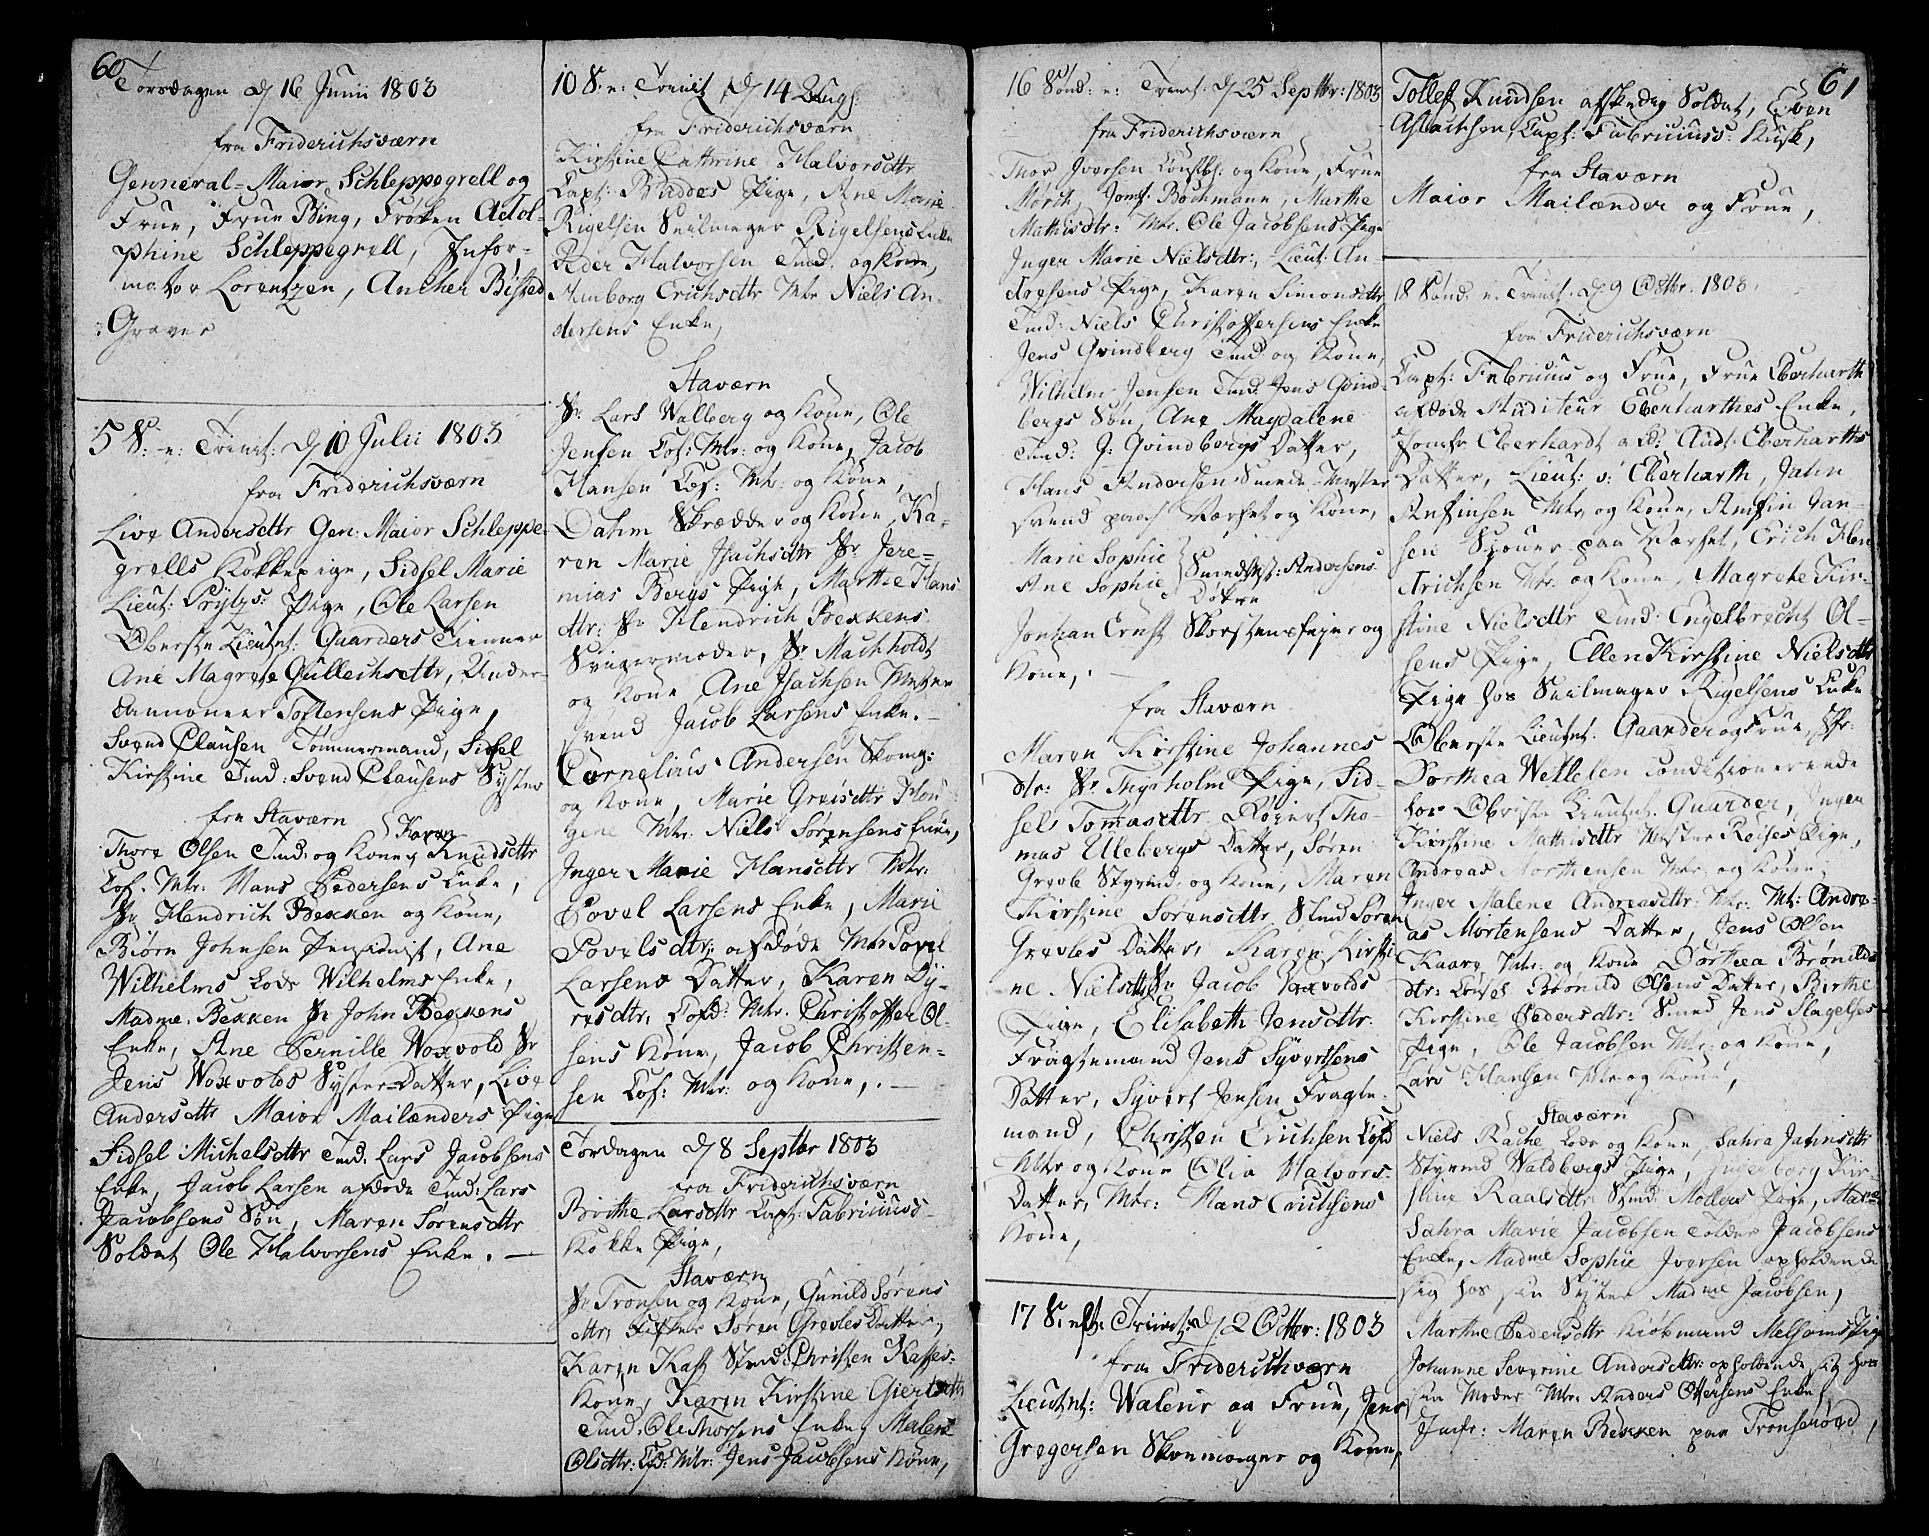 60
Torsdagen d 16 Junii 1803
fra Friderichsværn
Genneral-Maior Schleppegrell og
Frue, Frue Bing, Frøken Adol-
phine Schleppegrell, Infor-
mator Lorentzen, Ancher Bisted
Graver
5 S: n: Trinit: d 10 Julii 1803
fra Friderichsværn
Live Andersdttr Gen: Maior Schleppe-
grells Kokkepige, Sidsel Marie
Lieut: Prytzs: Pige, Ole Larsen
Oberste Lieutnt: Quarders Tienner
Ane Magrete Gulleichsdttr, Under-
Cannoneer Tostensens Pige,
Svend Clausen Tømmermand, Sidsel
Kirstine Tmd: Svend Clausens Syster
fra Staværn
Thore Olsen Tmd: og Kone, Karen Knudsdttr
Tof. Mtr: Hans Pedersens Enke,
Sr Hendrich Bekken og Kone,
Biørn Johnsen Pensionist, Ane
Wilhelms Lods Wilhelms Enke,
Madme. Bekken Sr John Bekkens
Enke, Ane Pernille Woxvold Sr
Jens Woxvolds Syster-Datter, Live
Andersdttr Maior Mailænders Pige
Sidsel Michelsdttr Tmd. Lars Jacobsens
Enke, Jacob Larsen afdøde Tmd: Lars
Jacobsens Søn, Maren Sørensdttr
Soldat Ole Halvorsens Enke. —
10 S: n: Trinit d 14 Augs:
fra Friderichsværn
Kirstine Cathrine Halvorsdttr
Capt: Buddes Pige, Ane Marie
Rigelsen Seilmager Rigelsens Enke
Peder Halvorsen Tmd. og Kone,
Amborg Erichsdttr Mtr Niels An-
dersens Enke,
Staværn
Sr Lars Walberg og Kone, Ole
Jensen Tof: Mtr: og Kone, Jacob
Hansen Tof: Mtr: og Kone,
Dahm Skrædder og Kone, Ka-
ren Marie Isachsdttr Sr Jere-
mias Bergs Pige, Marthe Hans
dttr: Sr Hendrich Bekkens
Svigermoder, Sr Machholdt
og Kone Ane Isachsen Mester
svend Jacob Larsens Enke. —
Cornelius Andersen Skomg:
og Kone, Marie Greisdttr
Mtr: Niels Sørensens Enke,
Inger Marie Hansdttr Mtr:
Povel Larsens Enke, Marie
Povelsdtr: afdøde Mtr Povel
Larsens Datter, Karen Dy-
resdttr, Tofd: Mtr. Christoffer Ol-
sens Kone, Jacob Christen-
sen Tof: Mtr: og Kone, . —
Torsdagen d 8 Septbr 1803
fra Friderichsværn
Birthe Larsdttr Capt: Fabriciuss
Kokke Pige,
Staværn
Sr Tronsen og Kone, Gunild Sørens
dttr, Søren Grevles Datter,
Karen Kass Stmd: Christen Kasses
Kone, Karen Kirstine Giertsdttr
Tmd: Ole Thorsens Enke, Malene
Olsdttr: Tofd: Mtr: Jens Jacobsens Kone,
16 Sønd: n: Trinit. d 25 Septbr: 1803
fra Friderichsværn
Thor Iversen Constbl: og Kone, Frue
Mørch, Jomf. Bochmann, Marthe
Mathisdtr: Mtr. Ole Jacobsens Pige
Inger Marie Nielsdttr:, Lieut: An-
dresens Pige, Karen Simonsdttr
Tmd: Niels Christoffersens Enke
Jens Qvindberg Tmd og Kone,
Wilhelm Jensen Tmd. Jens Qvind-
bergs Søn, Ane Magdalene
Tmd: J: Qvindbergs Datter,
Hans Andersen Smede-Mester
svend paa Værfet og Kone,
Marie Sophie
Ane Sophie
Smedmst: Andersens
Døttre
Jonthan Ernst Skorstensfejer og
Kone, . —
fra Staværn
Maren Kirstine Johannes
dtr: Sr Thyrholm Pige, Sid-
sel Tomasdttr Tho-
mas Ulebergs Datter, Søren
Grevle Styrmd. og Kone, Maren
Kirstine Sørensdttr Stmd Søren
Grevles Datter, Karen Kirsti
ne Nielsdttr Sr Jacob Woxvolds
Pige, Elisabeth Jensdttr:
Fragtemand Jens Syvertsens
Datter, Syvert Jensen Fragte-
mand, Christen Erichsen Tofd
Mtr og Kone Olia Halvors-
Datter, Mtr: Hans Erichsens
Kone,
17 S: eft: Trinit: d 2 Octbr: 1803
fra Friderichværn
Lieutnt: Waleur og Frue, Jens
Gregersen Skoemager og Kone,
61
Tollef Knudsen afskediget Soldat, Even
Aslachsen Capt: Fabriciuss: Kusk,
fra Staværn
Maior Mailænder og Frue,
18 Sønd: n: Trinit. d 9 Octbr: 1803.
fra Friderichsværn
Capt: Fabricius og Frue, Frue Eberharth
afdøde Auditeur Eberharthes Enke,
Jomfr Eberhardt afd: Audt: Eberharths
Datter, Lieut: v: Eberharth, Jahn
Anfinsen Mtr og Kone, Amfin Jan-
sen paa Værfet, Erich Hen
drichsen Mtr: og Kone, Magrete Kir-
stine Nielsdttr Tmd: Engelbrecht Ol-
sens Pige, Ellen Kirstine Nielsdttr
Pige hos Seilmager Rigelsens Enke
Oberste Lieutnt. Quarder og Frue, Jfr:
Dorthea Wellelen conditionerende
hos Obriste Lieutnt. Quarder, Inger
Kirstine Mathisdttr Mester Reises Pige,
Andreas Morthensen Mtr: og Kone,
Inger Malene Andreasdttr: Mtr: Andre-
as Mortensens Datter, Jens Olsen
Kaare Mtr: og Kone Dorthea Brønilds
dtr: Brønild Olsens Datter, Birthe
Kirstine Pedersdttr: Smed Jens Slagelses
Pige, Ole Jacobsen Mtr: og Kone,
Lars Hansen Mtr og Kone,
Staværn
Niels Rache Lods og Kone, Sahra Jahnsdttr
Styrmd Waldbergs Pige, Ingeborg Kir-
stine Roalsdttr Stmd: Møllers Pige, Mad
Sahra Marie Jacobsen Tolder Jacobsens
Enke, Madme Sophie Iversen opholdende
sig hos sin Syster Madme Jacobsen,
Marthe Pedersdttr Kiøbmand Melsoms Pige
Johanne Severine Andersdttr: opholdende sig hos
sin Moder Mtr: Anders Ottersens Enke,
Jmfr: Maren Bekken paa Tronserød,